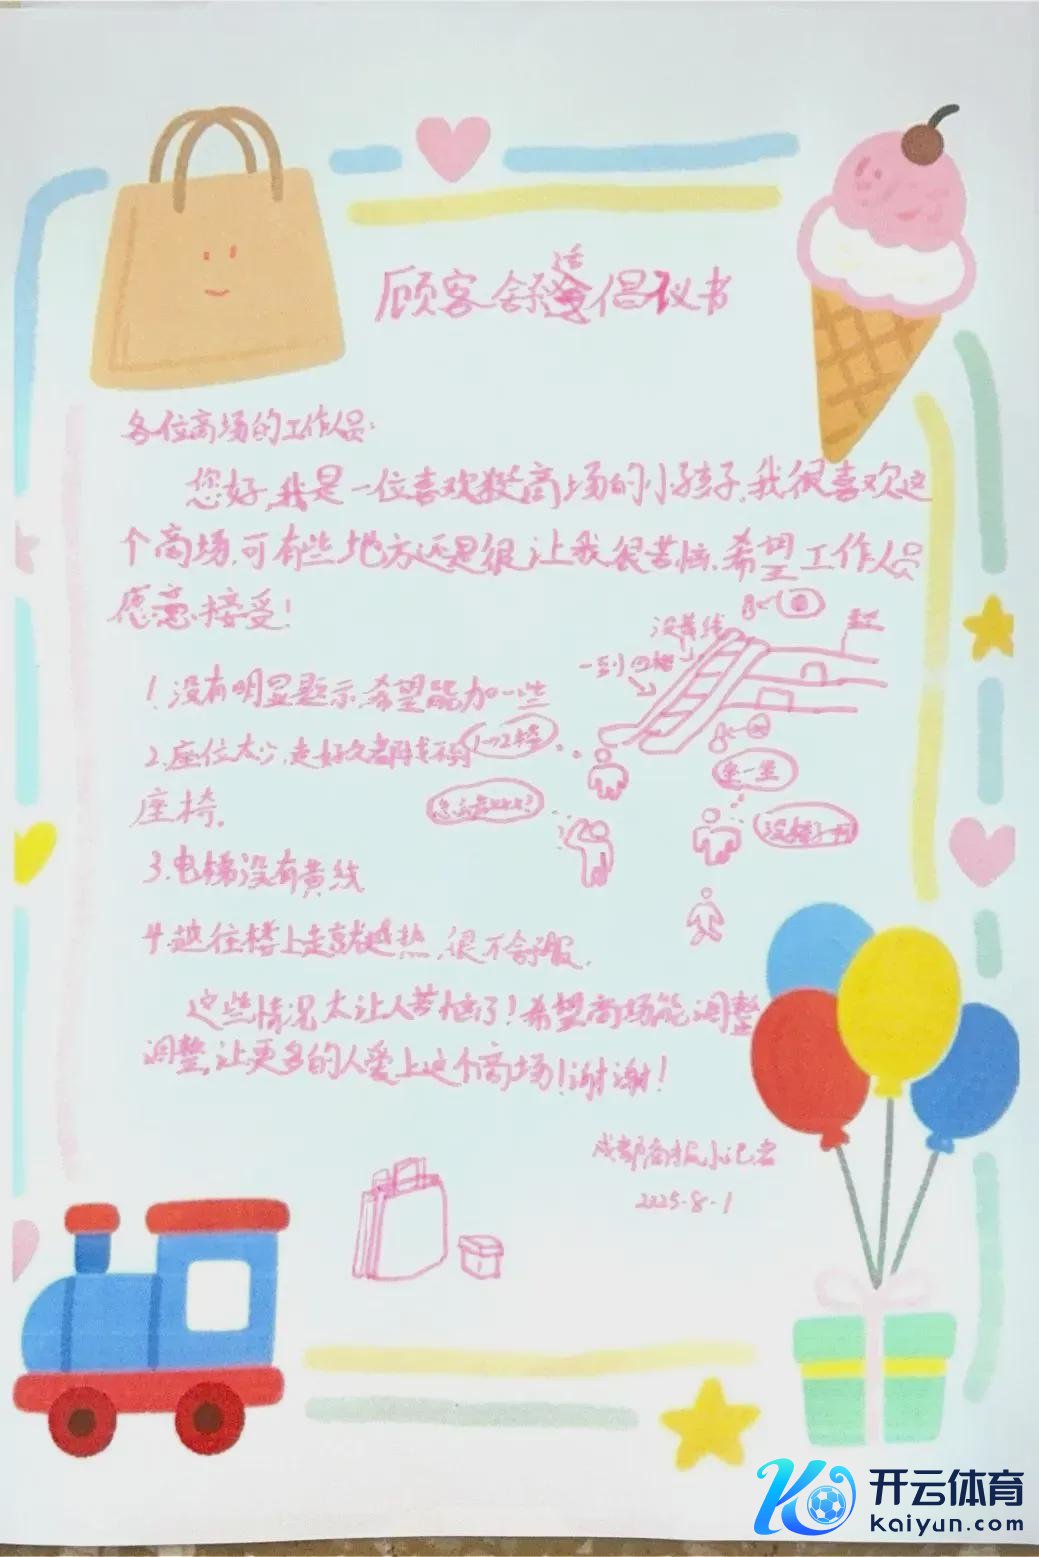 顾客舒适倡议书
各位商场的工作人员:
您好,我是一位喜欢逛商场的小孩子,我很喜欢这
个商场,可有些地方还是很让我很苦恼,希望工作人员
愿意接受!
1.没有明显题示,希望能加一些
2.座位太少,走好久都找不到
座椅。
3.电梯没有黄线
4.越往楼上走就越热,很不舒服。
这些情况太让人苦恼了!希望商场能调整
调整,让更多的人爱上这个商场!谢谢!
没黄线
一到四楼
1→2楼
坐一坐
成都商报小记者
2025.8.1
开云体育
kaiyun.com